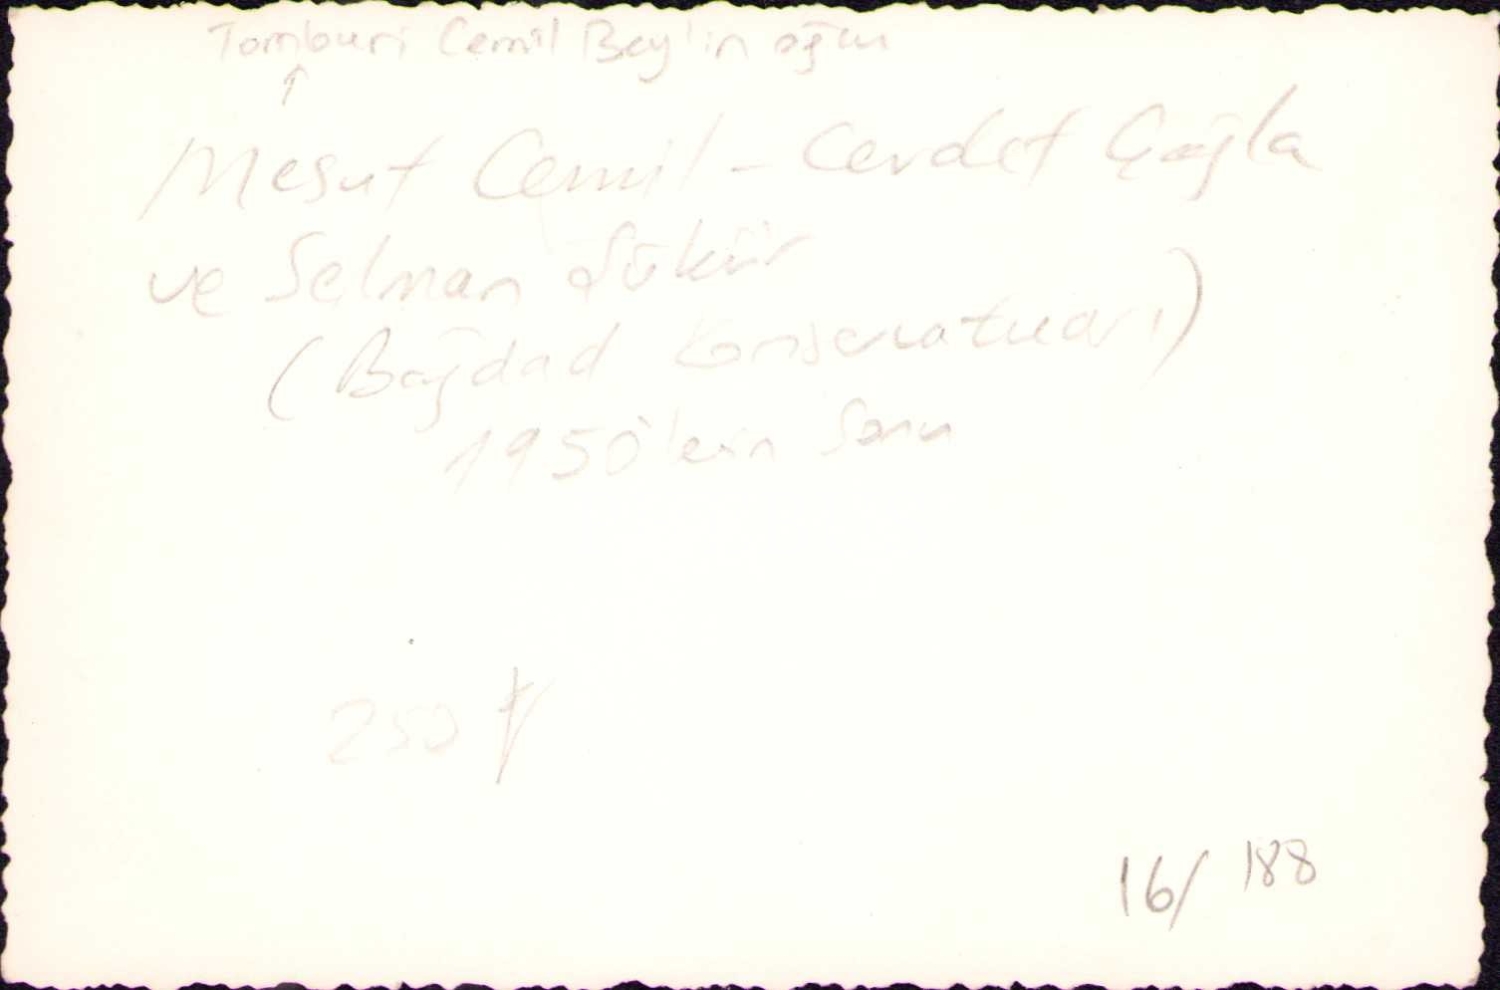 Tamburi Cemil Bey'in oğlu
↑
Mesut Cemil - Cevdet Çağla
ve Selman Şükür
(Bağdad Konservatuarı)
1950'lerin Sonu
250
16/188